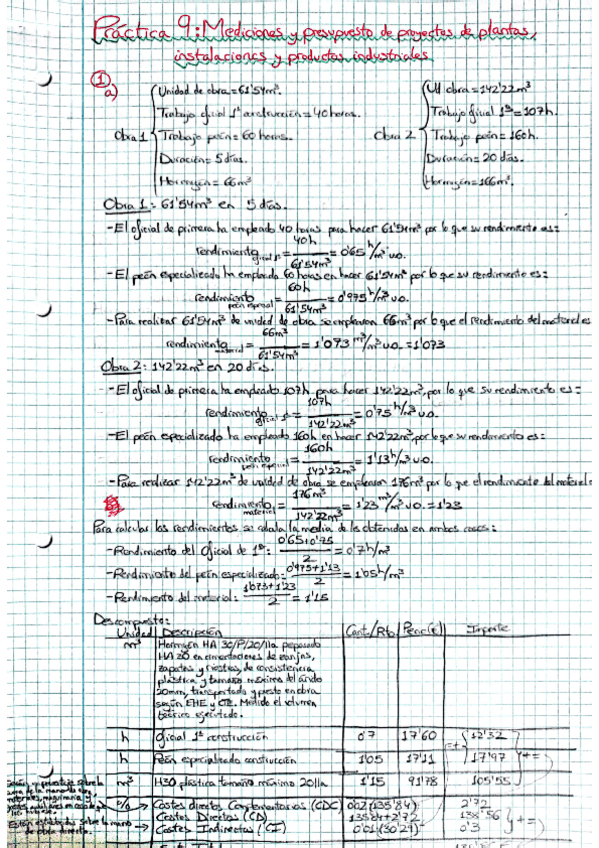 Práctica 9: Mediciones y presupuesto de proyectos de plantas,
instalaciones y productos industriales.
1
a)
Obra 1
Unidad de obra = 61'54m³
Trabajo oficial 1ª construcción = 40 horas.
Trabajo peón = 60 horas.
Duración = 5 días.
Hormigón = 66m³
Obra 2
Ud obra = 142'22m³
Trabajo oficial 1ª = 107h.
Trabajo peón = 160h.
Duración = 20 días.
Hormigón = 166m³.
Obra 1: 61'54m³ en 5 días.
-El oficial de primera ha empleado 40 horas para hacer 61'54m³ por lo que su rendimiento es:
rendimiento oficial 1ª = 40h / 61'54m³ = 0'65 h/m³ u.o.
-El peón especializado ha empleado 60 horas en hacer 61'54m³ por lo que su rendimiento es:
rendimiento peón especial = 60h / 61'54m³ = 0'975 h/m³ u.o.
-Para realizar 61'54m³ de unidad de obra se emplearon 66m³ por lo que el rendimiento del material es
rendimiento material = 66m³ / 61'54m³ = 1'073 m³/m³ u.o. = 1'073
Obra 2: 142'22m³ en 20 días.
-El oficial de primera ha empleado 107h para hacer 142'22m³, por lo que su rendimiento es:
rendimiento oficial 1ª = 107h / 142'22m³ = 0'75 h/m³ u.o.
-El peón especializado ha empleado 160h en hacer 142'22m³, por lo que su rendimiento es:
rendimiento peón especial = 160h / 142'22m³ = 1'13 h/m³ u.o.
-Para realizar 142'22m³ de unidad de obra se emplearon 176m³ por lo que el rendimiento del material
rendimiento material = 176m³ / 142'22m³ = 1'23 m³/m³ u.o. = 1'23
Para calcular los rendimientos se calcula la media de los obtenidos en ambos casos:
-Rendimiento del oficial de 1ª: 0'65+0'75 / 2 = 0'7 h/m³
-Rendimiento del peón especializado: 0'975+1'13 / 2 = 1'05 h/m³
-Rendimiento del material: 1'073+1'23 / 2 = 1'15
Descompuesto:
Unidad Descripción Cant./Rto Precio(€) Importe
m³ Hormigón HA 30/P/20/IIa preparado
HA 20 en cimentaciones de zanjas,
zapatas y riostras, de consistencia
plástica y tamaño máximo del árido
20mm, transportado y puesto en obra
según EHE y CTE. Medido el volumen
teórico ejecutado.
h Oficial 1ª construcción 0'7 17'60 12'32
h Peón especializado construcción 1'05 17'11 17'97
m³ H30 plástica tamaño máximo 20IIa 1'15 91'78 105'55
% Costes directos Complementarios (CDC) 0'02(135'84) 2'72
Costes Directos (CD) 135'84+2'72 138'56
Costes Indirectos (CI) 0'01(30'29) 0'3